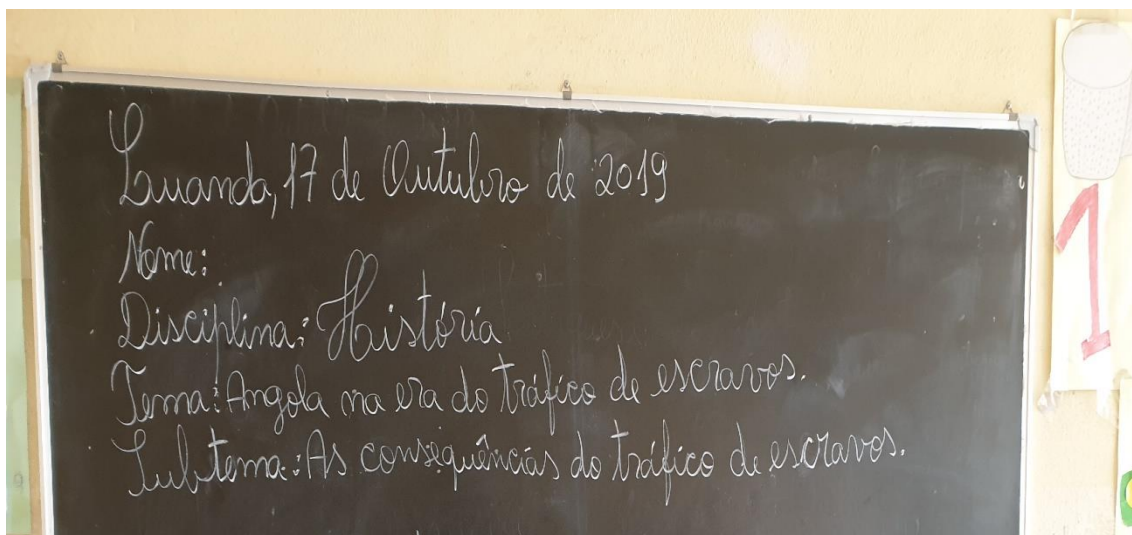 Luanda, 17 de Outubro de 2019
Nome:
Disciplina: História
Tema: Angola na era do tráfico de escravos.
Subtema: As consequências do tráfico de escravos.
1